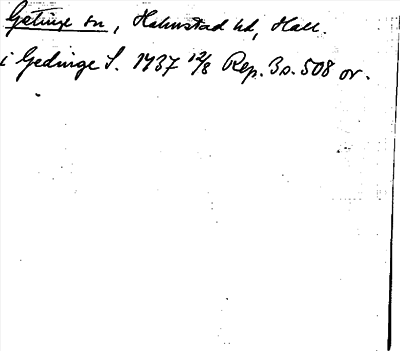 Getinge sn, Halmstad hd, Hall.
i Gedinge S. 1437 12/8 Rep. 3 s. 508 or.